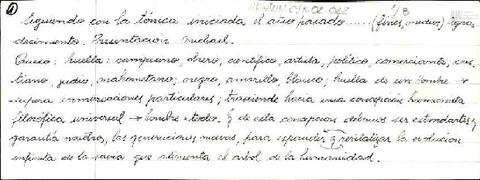 Siguiendo con la tónica iniciada el año pasado..... (fines, medios) agra-
decimiento. Presentación Michael.
Oveco: huella: campesino, obrero, científico, artista, político, comerciante, cris-
tiano, judío, mahometano; negro, amarillo, blanco; huella de un hombre q
supera enmarcaciones particulares; trasciende hacia una concepción humanista
filosófica universal → hombre-todo. Y de esta concepción debemos ser estandartes y
garantía nosotros, las generaciones nuevas, para expandir y revitalizar la evolución
infinita de la savia que alimenta el árbol de la humanidad.